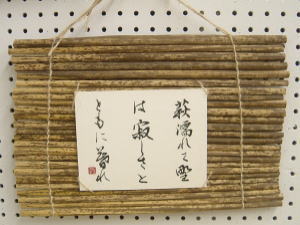 萩濡れて野
は寂しさと
ともに暮れ